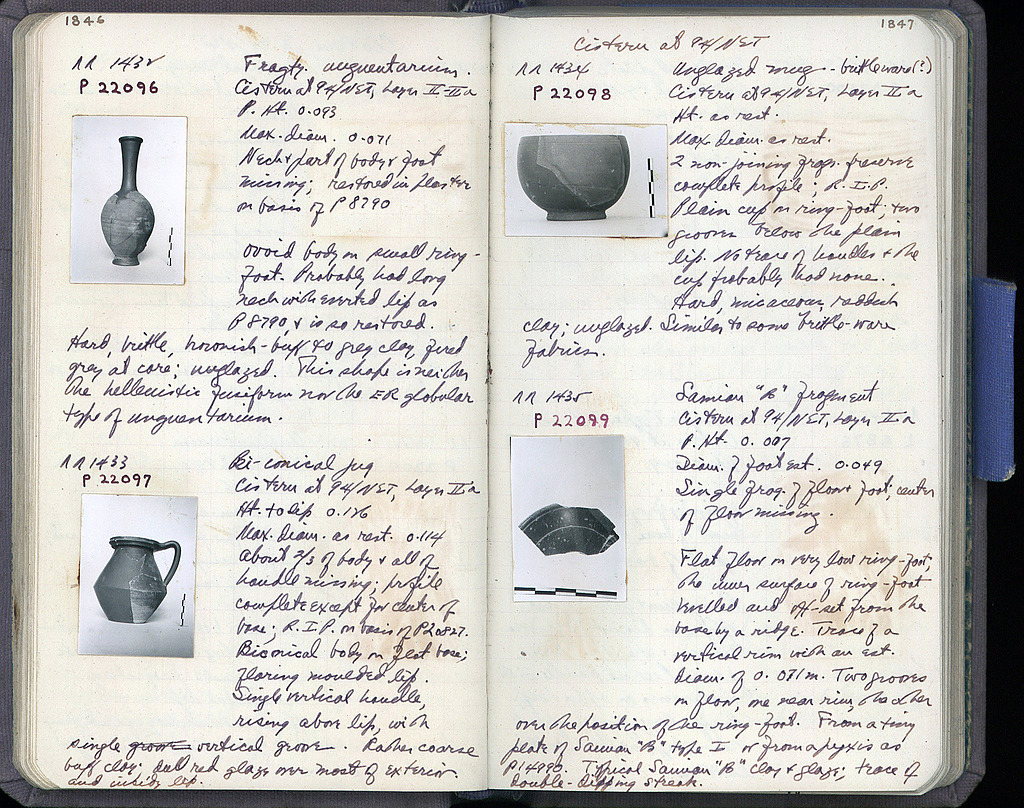 1846
ΛΛ 1432
P 22096
Fragty. unguentarium.
Cistern at 94/NET, Layer II-IIa
P. Ht. 0.093
Max. diam. 0.071
Neck & part of body & foot
missing; restored in plaster
on basis of P 8790
ovoid body on small ring-
foot. Probably had long
neck with everted lip as
P 8790, & is so restored.
Hard, brittle, brownish-buff to grey clay, fired
grey at core; unglazed. This shape is neither
the hellenistic fusiform nor the ER globular
type of unguentarium.
ΛΛ 1433
P 22097
Bi-conical jug
Cistern at 94/NET, Layer IIa
Ht. to lip 0.126
Max. diam. as rest. 0.114
About 2/3 of body & all of
handle missing; profile
complete except for center of
base; R.I.P. on basis of P20827.
Biconical body on flat base;
flaring moulded lip.
Single vertical handle,
rising above lip, with
single groove vertical groove. Rather coarse
buff clay; dull red glaze over most of exterior
and inside lip.
1847
Cistern at 94/NET
ΛΛ 1434
P 22098
Unglazed mug - brittle ware(?)
Cistern at 94/NET, Layer IIa
Ht. as rest.
Max. Diam. as rest.
2 non-joining frags. preserve
complete profile; R.I.P.
Plain cup on ring-foot; two
grooves below the plain
lip. No trace of handles & the
cup probably had none.
Hard, micaceous, reddish
clay; unglazed. Similar to some brittle-ware
fabrics.
ΛΛ 1435
P 22099
Samian "B" fragment
Cistern at 94/NET, Layer IIa
P. Ht. 0.007
Diam. of foot est. 0.049
Single frag. of floor & foot; center
of floor missing.
Flat floor on very low ring-foot,
the inner surface of ring-foot
bevelled and off-set from the
base by a ridge. Trace of a
vertical rim with an est.
diam. of 0.071 m. Two grooves
on floor, one near rim, the other
over the position of the ring-foot. From a tiny
plate of Samian "B" type I or from a pyxis as
P 14990. Typical Samian "B" clay & glaze; trace of
double-dipping streak.